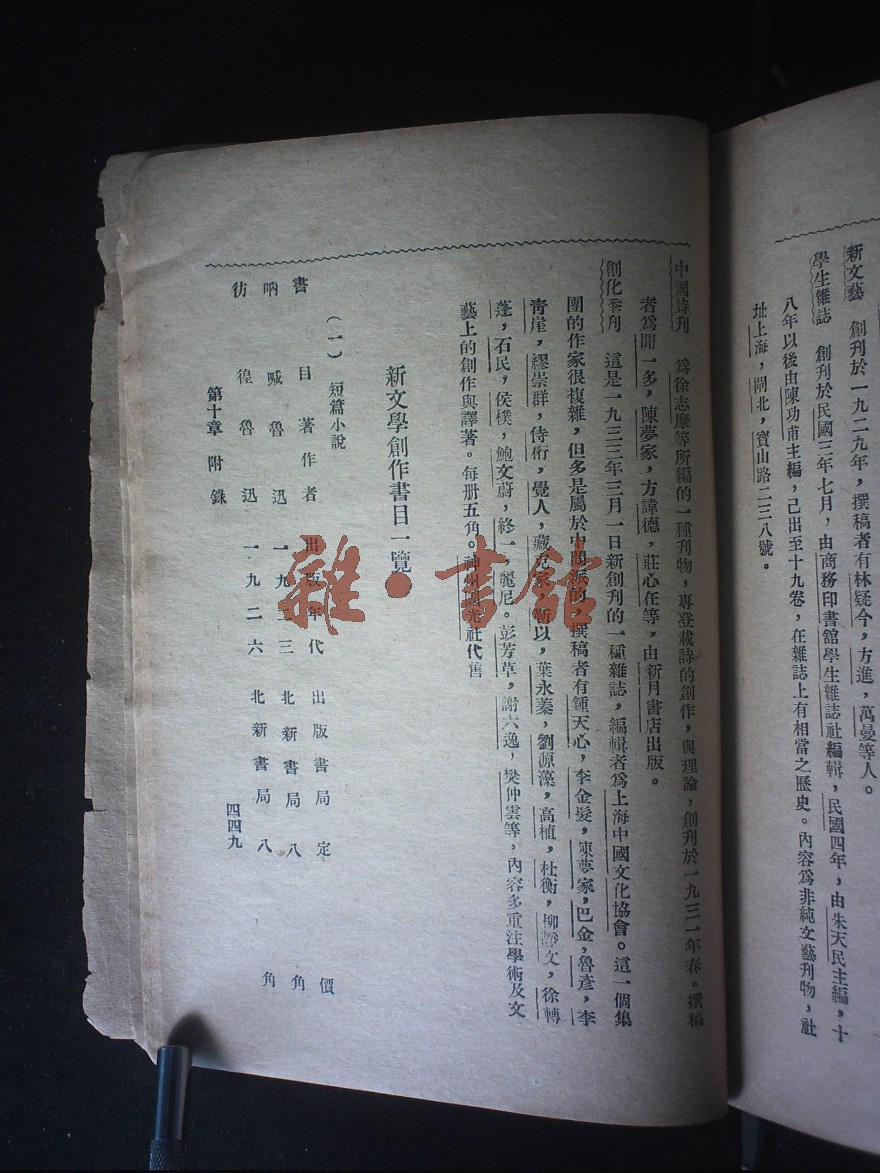 新文藝　創刊於一九二九年，撰稿者有林疑今，方進，萬曼等人。
學生雜誌　創刊於民國三年七月，由商務印書館學生雜誌社編輯，民國四年，由朱天民主編，十
八年以後由陳功甫主編，已出至十九卷，在雜誌上有相當之歷史。內容爲非純文藝刊物，社
址上海，閘北，寶山路二三八號。
中國詩刊　爲徐志摩等所編的一種刊物，專登載詩的創作，與理論，創刊於一九三一年春。撰稿
者爲聞一多，陳夢家，方諱德，莊心任等，由新月書店出版。
創化季刊　這是一九三三年三月一日新創刊的一種雜誌，編輯者爲上海中國文化協會。這一個集
團的作家很複雜，但多是屬於中間派的，撰稿者有鍾天心，李金髮，陳夢家，巴金，魯彥，李
青崖，繆崇群，侍桁，覺人，臧克家，靳以，葉永蓁，劉源藻，高植，杜衡，柳靜文，徐轉
蓬，石民，侯樸，鮑文蔚，終一，麗尼。彭芳草，謝六逸，樊仲雲等，內容多重注學術及文
藝上的創作與譯著。每册五角。神州國光社代售
新文學創作書目一覽
（一）短篇小說
書目　著作者　出版年代　出版書局　定價
吶喊　魯迅　一九二三　北新書局　八角
彷徨　魯迅　一九二六　北新書局　八角
第十章　附錄　四四九
雜·書館